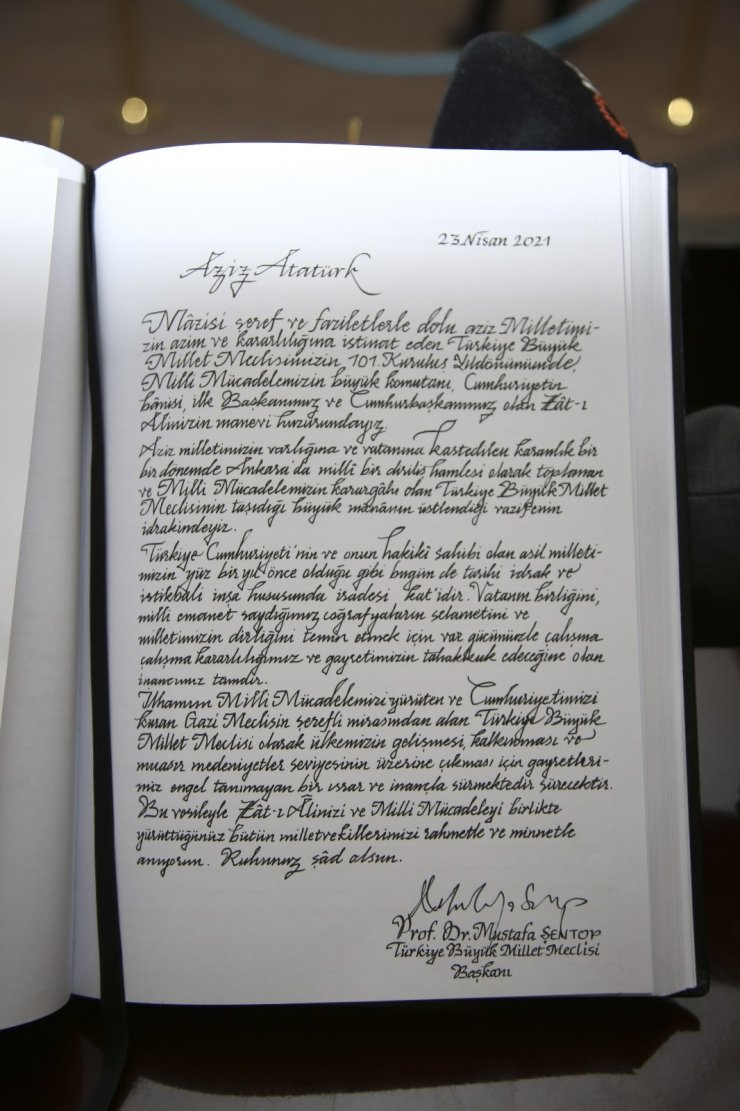 23 Nisan 2021
Aziz Atatürk
Mâzisi şeref ve faziletlerle dolu aziz Milletimi-
zin azim ve kararlılığına istinat eden Türkiye Büyük
Millet Meclisimizin 101. Kuruluş Yıldönümünde,
Millî Mücadelemizin büyük komutanı, Cumhuriyetin
bânisi, ilk Başkanımız ve Cumhurbaşkanımız olan Zât-ı
Âlinizin manevi huzurundayız.
Aziz milletimizin varlığına ve vatanına kastedilen karanlık bir
bir dönemde Ankara'da millî bir diriliş hamlesi olarak toplanan
ve Milli Mücadelemizin karargâhı olan Türkiye Büyük Millet
Meclisinin taşıdığı büyük mânânın üstlendiği vazifenin
idrakindeyiz.
Türkiye Cumhuriyeti'nin ve onun hakikî sahibi olan asil milleti-
mizin yüz bir yıl önce olduğu gibi bugün de tarihi idrak ve
istikbali inşa hususunda iradesi kat'idir. Vatanın birliğini,
milli emanet saydığımız coğrafyaların selametini ve
milletimizin dirliğini temin etmek için var gücümüzle çalışma
çalışma kararlılığımız ve gayretimizin tahakkuk edeceğine olan
inancımız tamdır.
İlhamını Milli Mücadelemizi yürüten ve Cumhuriyetimizi
kuran Gazi Meclisin şerefli mirasından alan Türkiye Büyük
Millet Meclisi olarak ülkemizin gelişmesi, kalkınması ve
muasır medeniyetler seviyesinin üzerine çıkması için gayretleri-
miz engel tanımayan bir ısrar ve inançla sürmektedir sürecektir.
Bu vesileyle Zât-ı Âlinizi ve Milli Mücadeleyi birlikte
yürüttüğünüz bütün milletvekillerimizi rahmetle ve minnetle
anıyorum. Ruhunuz şâd olsun.
Prof. Dr. Mustafa ŞENTOP
Türkiye Büyük Millet Meclisi
Başkanı